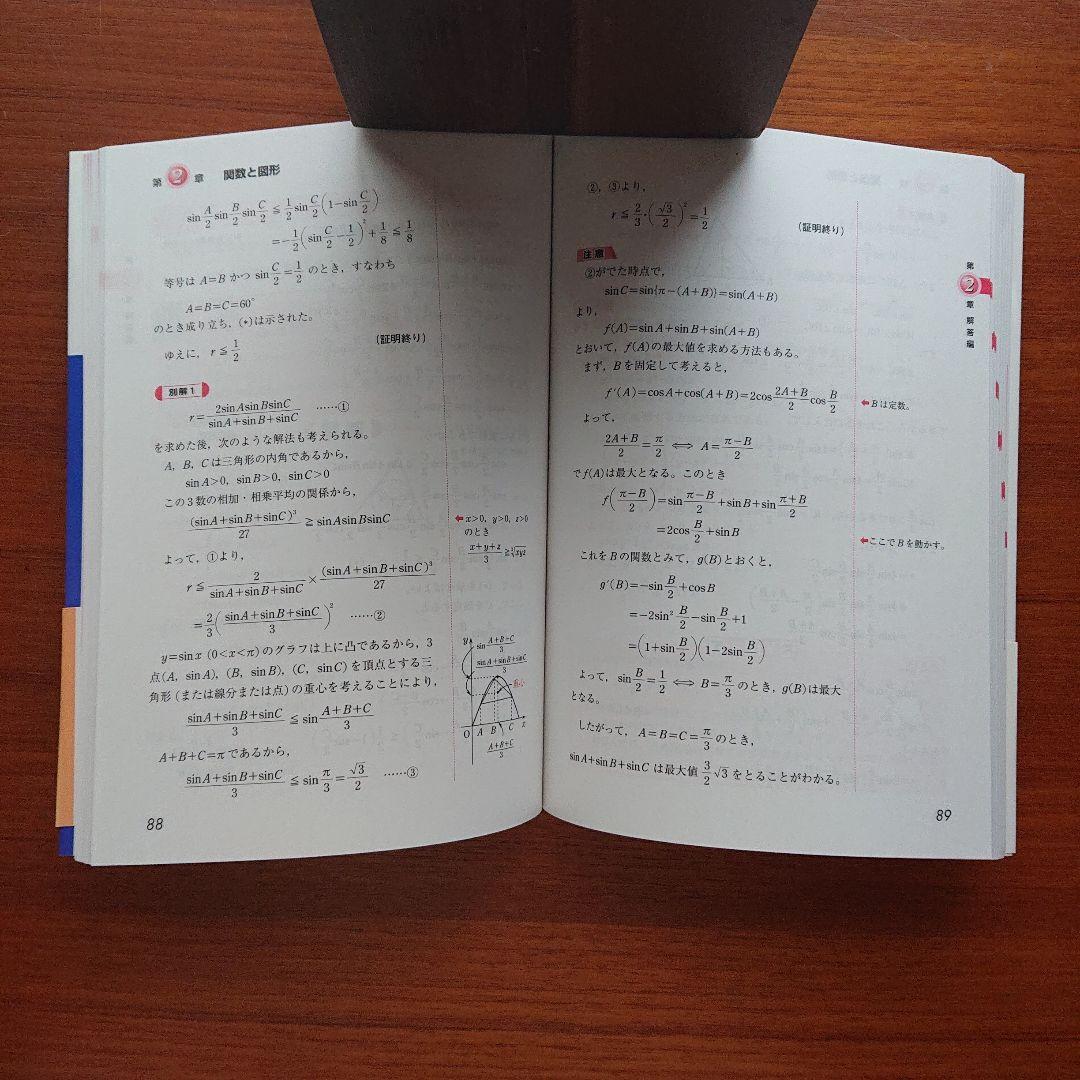 第2章 関数と図形
sin A/2 sin B/2 sin C/2 ≦ 1/2 sin C/2 (1−sin C/2)
=−1/2 (sin C/2 − 1/2)² + 1/8 ≦ 1/8
等号は A=B かつ sin C/2 = 1/2 のとき，すなわち
A=B=C=60°
のとき成り立ち，(*)は示された。
ゆえに，r ≦ 1/2
(証明終り)
別解1
r = 2sinAsinBsinC/(sinA+sinB+sinC) ……①
を求めた後，次のような解法も考えられる。
A，B，Cは三角形の内角であるから，
sinA>0，sinB>0，sinC>0
この3数の相加・相乗平均の関係から，
(sinA+sinB+sinC)³/27 ≧ sinAsinBsinC
よって，①より，
r ≦ 2/(sinA+sinB+sinC) × (sinA+sinB+sinC)³/27
= 2/3 ((sinA+sinB+sinC)/3)² ……②
y=sinx (0<x<π)のグラフは上に凸であるから，3
点(A, sinA)，(B, sinB)，(C, sinC)を頂点とする三
角形(または線分または点)の重心を考えることにより，
(sinA+sinB+sinC)/3 ≦ sin (A+B+C)/3
A+B+C=πであるから，
(sinA+sinB+sinC)/3 ≦ sin π/3 = √3/2 ……③
←x>0，y>0，z>0
のとき
(x+y+z)/3 ≧ ³√xyz
y
sin (A+B+C)/3
(sinA+sinB+sinC)/3
重心
O A B C x
(A+B+C)/3
88
②，③より，
r ≦ 2/3・(√3/2)² = 1/2
(証明終り)
注意
②がでた時点で，
sinC=sin{π−(A+B)}=sin(A+B)
より，
f(A)=sinA+sinB+sin(A+B)
とおいて，f(A)の最大値を求める方法もある。
まず，Bを固定して考えると，
f′(A)=cosA+cos(A+B)=2cos (2A+B)/2 cos B/2
←Bは定数。
よって，
(2A+B)/2 = π/2 ⟺ A = (π−B)/2
でf(A)は最大となる。このとき
f((π−B)/2) = sin (π−B)/2 + sinB + sin (π+B)/2
=2cos B/2 + sinB
←ここでBを動かす。
これをBの関数とみて，g(B)とおくと，
g′(B)=−sin B/2 + cosB
=−2sin² B/2 − sin B/2 + 1
=(1+sin B/2)(1−2sin B/2)
よって，sin B/2 = 1/2 ⟺ B = π/3 のとき，g(B)は最大
となる。
したがって，A=B=C= π/3 のとき，
sinA+sinB+sinC は最大値 3/2 √3 をとることがわかる。
第2章 解答編
89